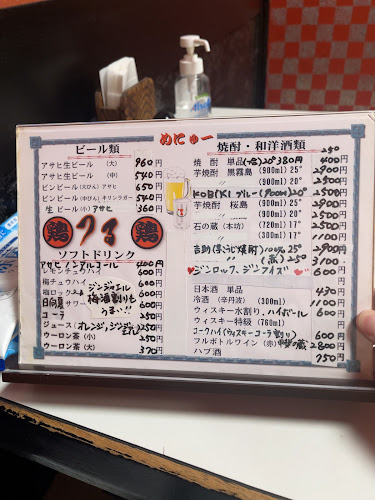 めにゅー
ビール類
アサヒ生ビール (大) 960円
アサヒ生ビール (中) 540円
ビンビール (大びん) アサヒ 650円
ビンビール (中びん) キリンラガー 540円
生ビール (小) アサヒ 360円
鶏 つる 鶏
ソフトドリンク
アサヒノンアルコール 400円
レモンチュウハイ 600円
梅チュウハイ
梅ロック
日向夏サワー 600円
ジンジャエル
梅酒割りも
うまい!!
コーラ 250円
ジュース(オレンジ,ジンジャエル) 250円
ウーロン茶 (小) 250円
ウーロン茶 (大) 370円
焼酎・和洋酒類
250
焼酎 単品 20°380円 400円
芋焼酎 黒霧島 (900ml) 25° 2500円
KOBIKI ブルー (900ml) 20° 2500円
芋焼酎 桜島 (900ml) 25° 2500円
石の蔵 (本坊) (720ml) 25° 2500円
吉助 100% 25° 2900円
25° 3100円
ジンロック、ジンフイズ 600円
日本酒 単品 430円
冷酒 (辛丹波) (300ml) 1100円
ウィスキー水割り、ハイボール 600円
ウィスキー特級 (760ml)
コークハイ(ウィスキーコーラ割り) 600円
フルボトルワイン (赤) 2800円
ハブ酒 750円